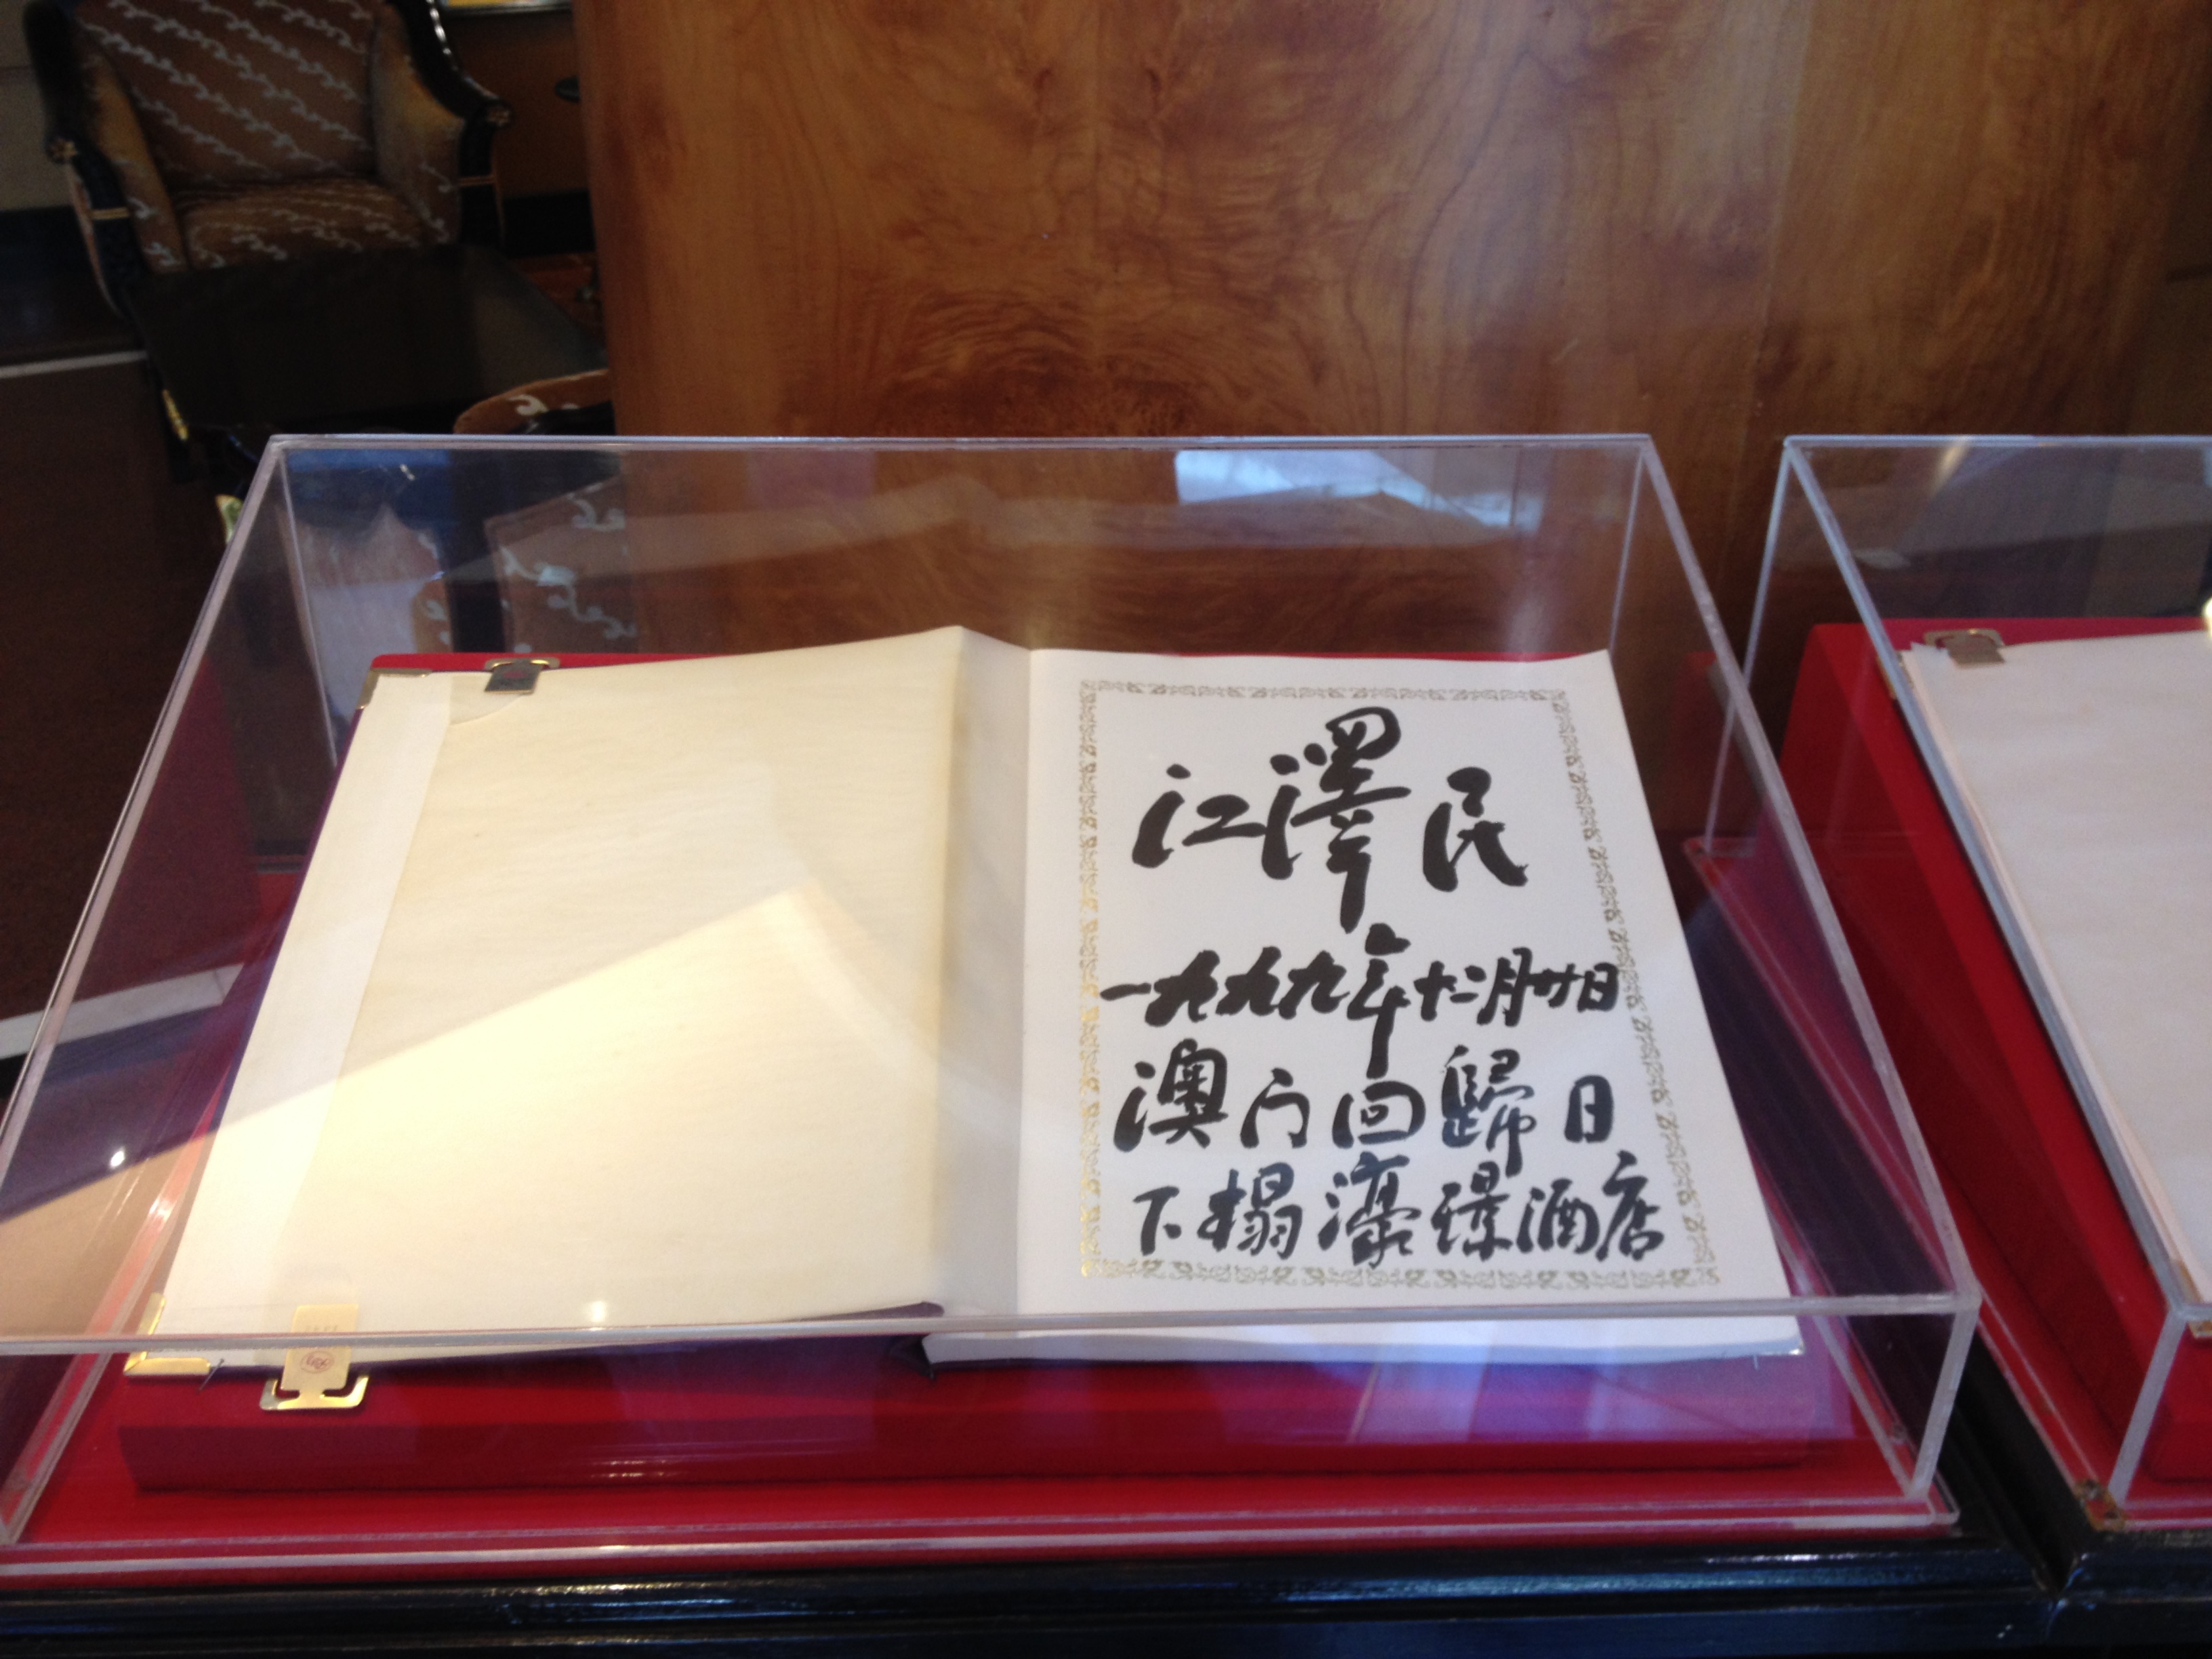 江澤民
一九九九年十二月廿日
澳门回歸日
下榻濠璟酒店